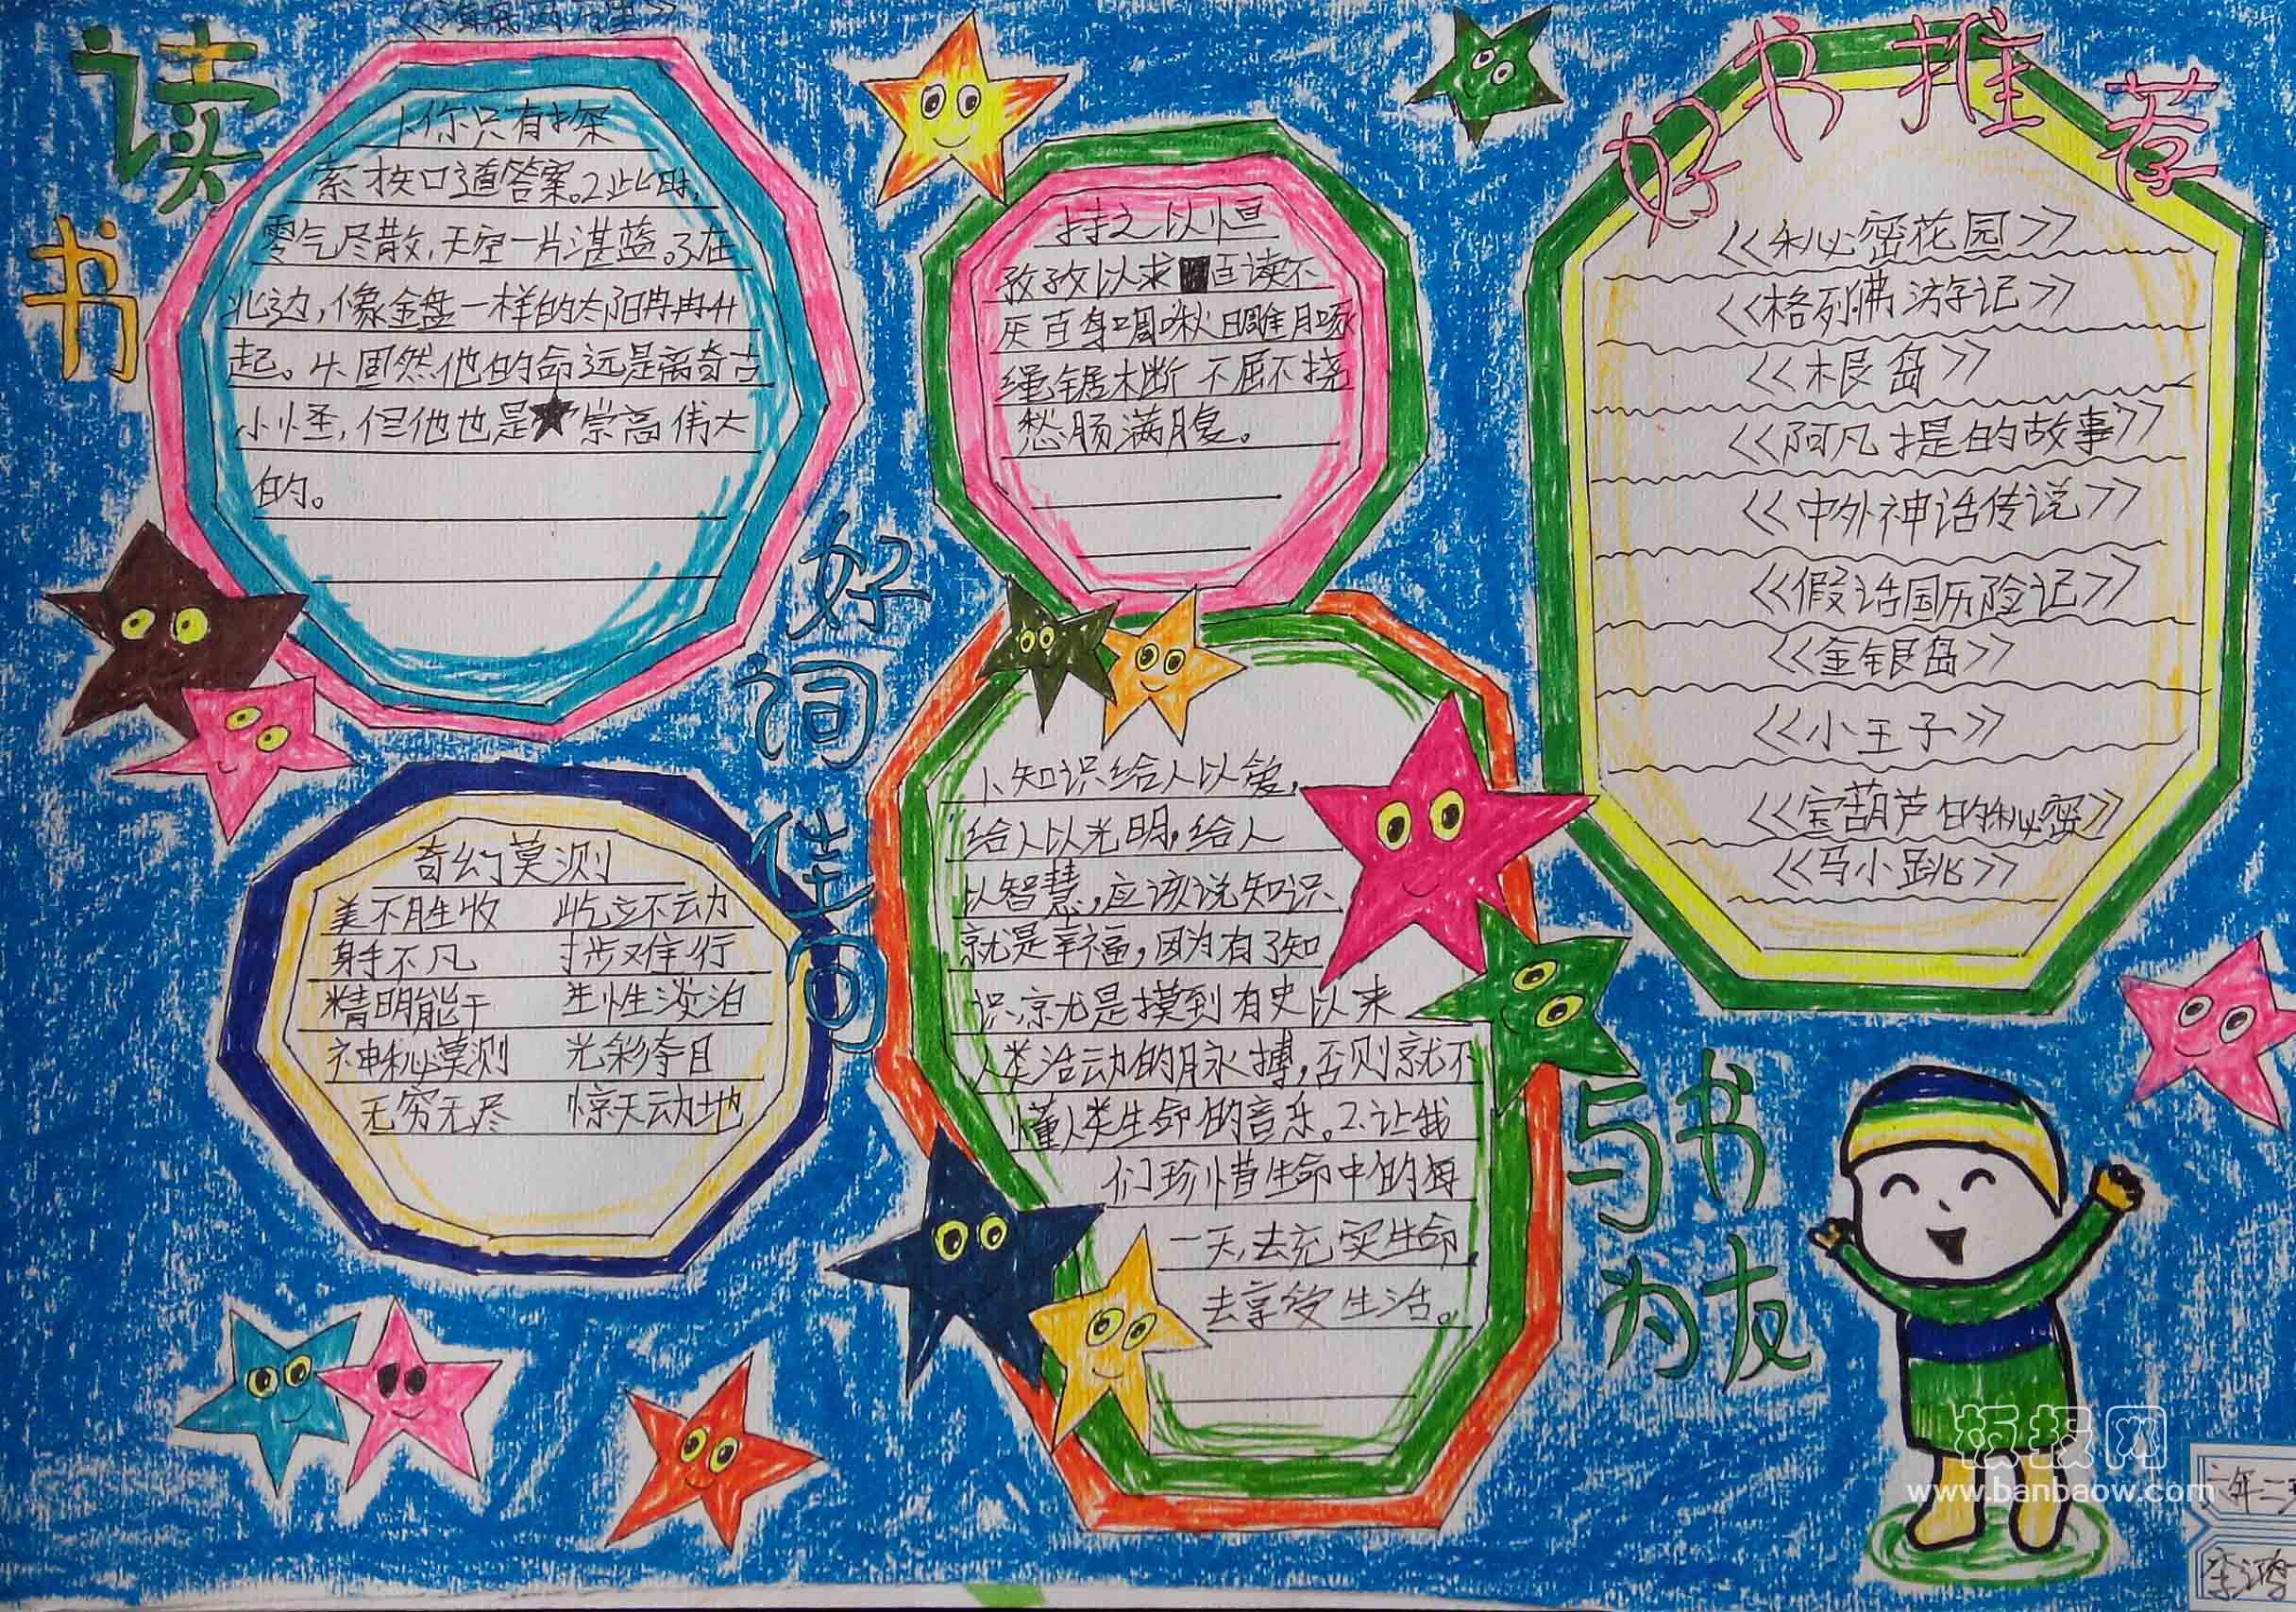 读书
1.你只有探
索才按口道答案。2.此时,
雾气尽散,天空一片湛蓝。3.在
北边,像金盘一样的太阳冉冉升
起。4.固然他的命远是离奇古
小怪,但他也是崇高伟大
的。
奇幻莫测
美不胜收 屹立不动
身手不凡 步难行
精明能干 生性淡泊
神秘莫测 光彩夺目
无穷无尽 惊天动地
好词佳句
持之以恒
孜孜以求 百读不
厌 百身 啁啾 日雕月琢
绳锯木断 不屈不挠
愁肠满腹。
1.知识给人以爱,
给人以光明,给人
以智慧,应该说知识
就是幸福,因为有了知
识,就是摸到有史以来
人类活动的脉搏,否则就不
懂人类生命的音乐。2.让我
们珍惜生命中的每
一天,去充实生命,
去享受生活。
好书推荐
《秘密花园》
《格列佛游记》
《根岛》
《阿凡提的故事》
《中外神话传说》
《假话国历险记》
《金银岛》
《小王子》
《宝葫芦的秘密》
《马小跳》
与书
为友
板报网
www.banbaow.com